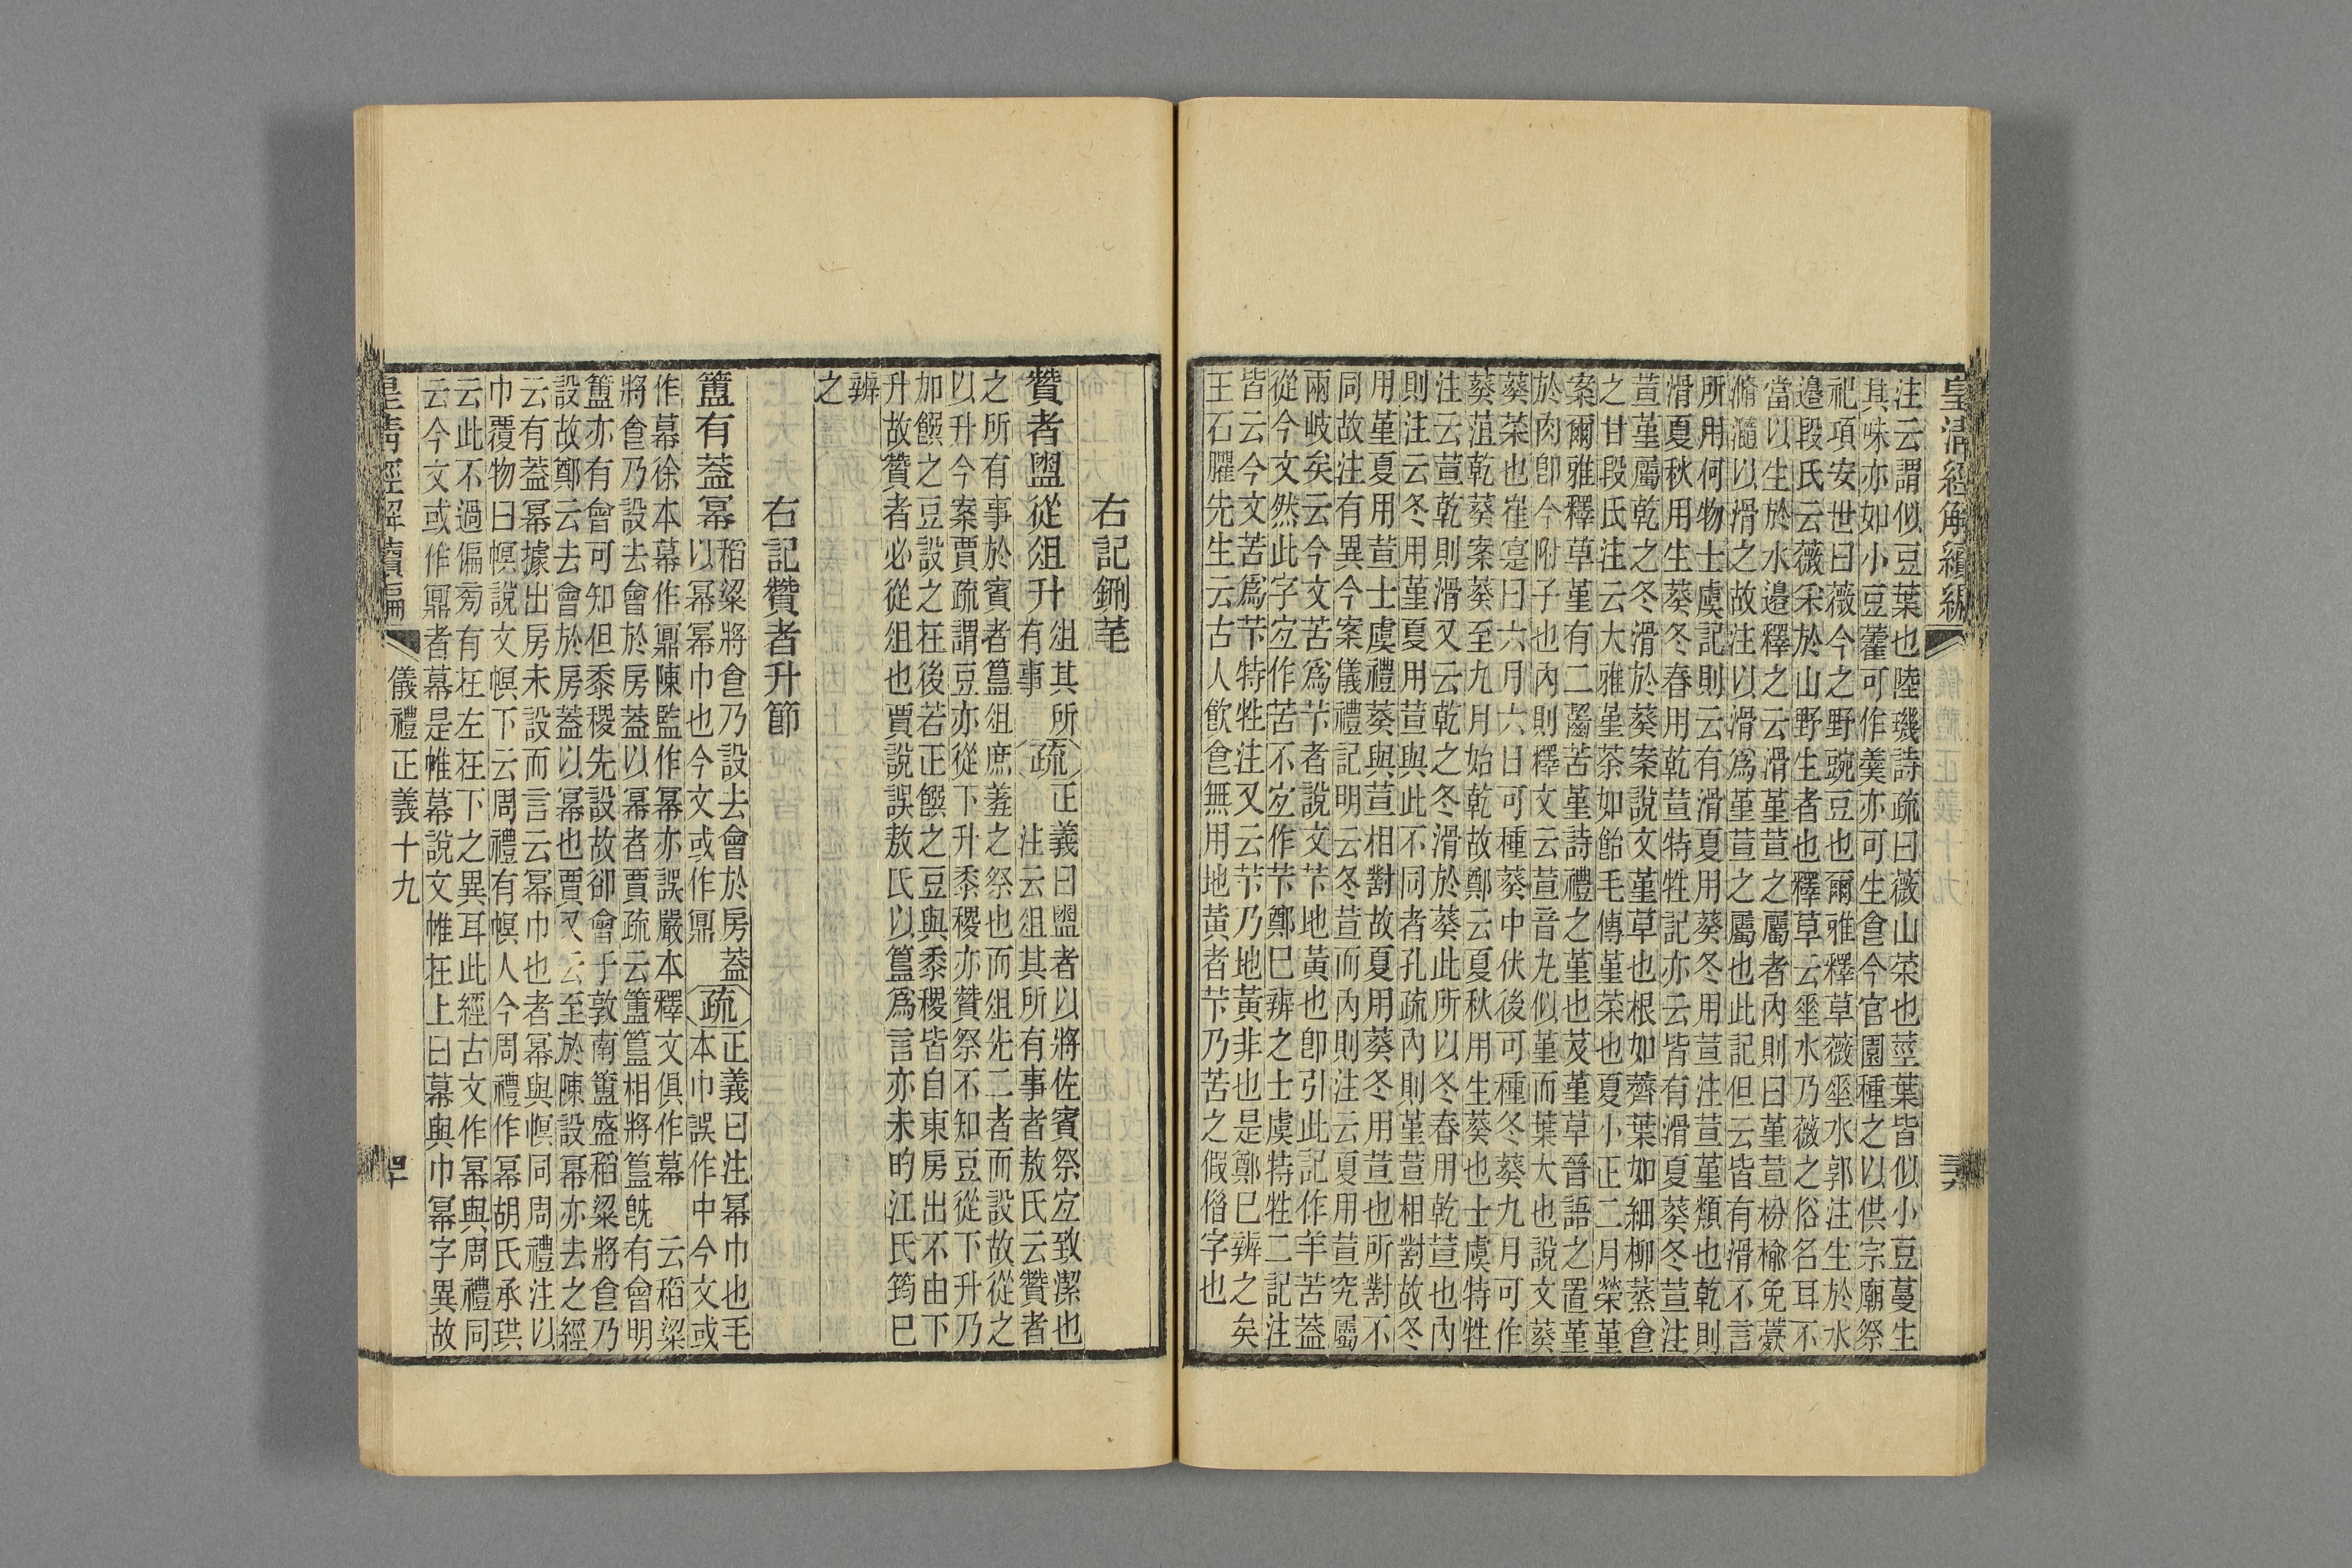 皇清經解續編
注云謂似豆葉也陸璣詩疏曰薇山菜也莖葉皆似小豆蔓生
其味亦如小豆藿可作羹亦可生食今官園種之以供宗廟祭
祀項安世曰薇今之野豌豆也爾雅釋草薇垂水郭注生於水
邉段氏云薇采於山野生者也釋草云垂水乃薇之俗名耳不
當以生於水邉釋之云滑堇荁之屬者內則曰堇荁枌榆免薧
滫瀡以滑之故注以滑爲堇荁之屬也此記但云皆有滑不言
所用何物士虞記則云有滑夏用葵冬用荁注荁堇類也乾則
滑夏秋用生葵冬春用乾荁特牲記亦云皆有滑夏葵冬荁注
荁堇屬乾之冬滑於葵案說文堇草也根如薺葉如細柳蒸食
之甘段氏注云大雅堇荼如飴毛傳堇菜也夏小正二月榮堇
案爾雅釋草堇有二齧苦堇詩禮之堇也芨堇草晉語之置堇
於肉卽今附子也內則釋文云荁音九似堇而葉大也說文葵
葵菜也崔寔曰六月六日可種葵中伏後可種冬葵九月可作
葵菹乾葵案葵至九月始乾故鄭云夏秋用生葵也士虞特牲
注云荁乾則滑又云乾之冬滑於葵此所以冬春用乾荁也內
則注云冬用堇夏用荁與此不同者孔疏內則堇荁相對故冬
用堇夏用荁士虞禮葵與荁相對故夏用葵冬用荁也所對不
同故注有異今案儀禮記明云冬荁而內則注云夏用荁究屬
兩岐矣云今文苦爲苄者說文苄地黃也卽引此記作羊苦葢
從今文然此字㝎作苦不㝎作苄鄭巳辨之士虞特牲二記注
皆云今文苦爲苄特牲注又云苄乃地黃非也是鄭巳辨之矣
王石臞先生云古人飮食無用地黃者苄乃苦之假借字也
右記鉶芼
贊者盥從俎升俎其所有事疏正義曰盥者以將佐賓祭㝎致潔也
注云俎其所有事者敖氏云贊者
之所有事於賓者簋俎庶羞之祭也而俎先二者而設故從之
以升今案賈疏謂豆亦從下升黍稷亦贊祭不知豆從下升乃
加饌之豆設之在後若正饌之豆與黍稷皆自東房出不由下
升故贊者必從俎也賈說誤敖氏以簋爲言亦未的江氏筠巳
辨
之
右記贊者升節
簠有葢冪稻粱將食乃設去會於房葢以冪冪巾也今文或作鼏疏正義曰注冪巾也毛
本巾誤作中今文或
作幕徐本幕作鼏陳監作冪亦誤嚴本釋文俱作幕　云稻粱
將食乃設去會於房葢以冪者賈疏云簠簋相將簋旣有會明
簠亦有會可知但黍稷先設故卻會于敦南簠盛稻粱將食乃
設故鄭云去會於房葢以冪也賈又云至於陳設冪亦去之經
云有葢冪據出房未設而言云冪巾也者冪與幎同周禮注以
巾覆物曰幎說文幎下云周禮有幎人今周禮作冪胡氏承珙
云此不過偏旁有在左在下之異耳此經古文作冪與周禮同
云今文或作鼏者幕是帷幕說文帷在上曰幕與巾冪字異故
皇清經解續編
儀禮正義十九